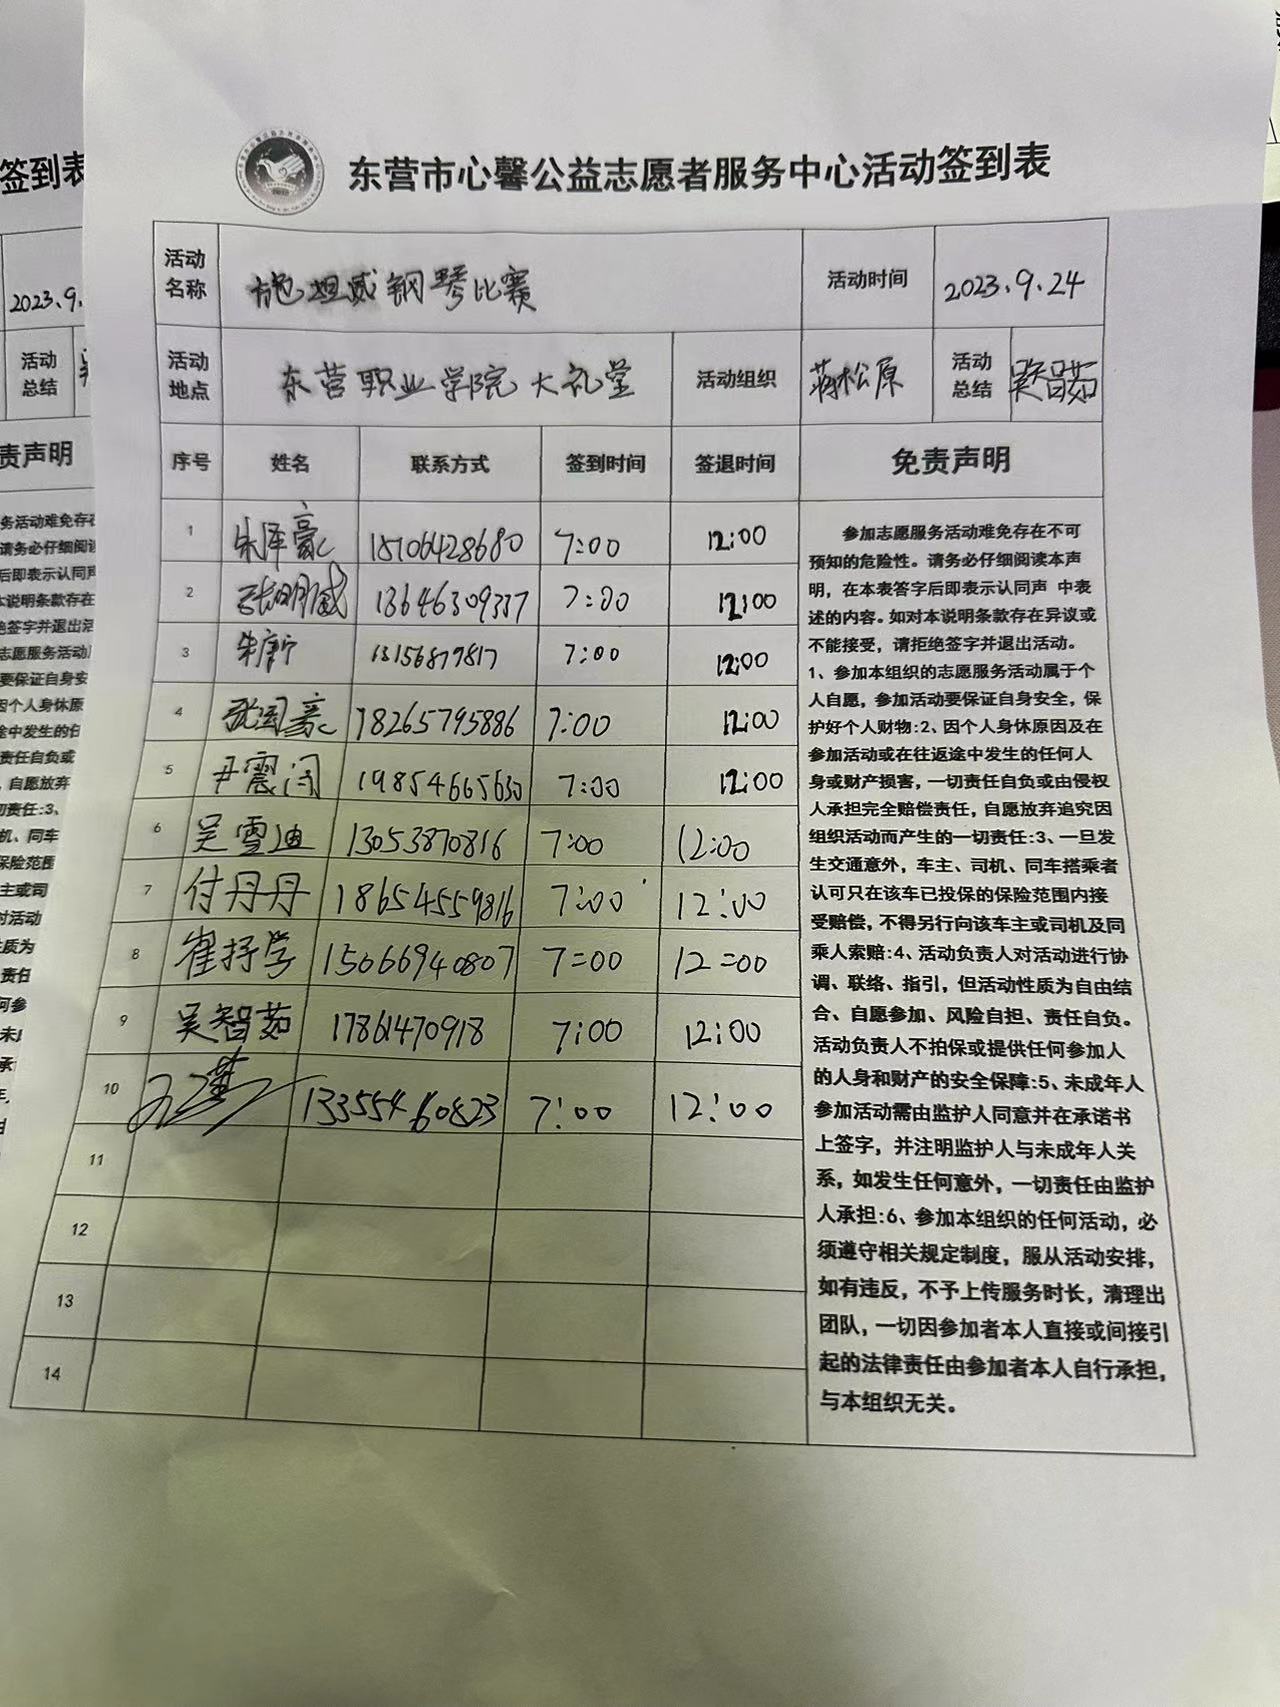 签到表
2023.9.
活动
总结
责声明
东营市心馨公益志愿者服务中心活动签到表
活动名称 施坦威钢琴比赛 活动时间 2023.9.24
活动地点 东营职业学院大礼堂 活动组织 蒋松原 活动总结 吴智茹
序号 姓名 联系方式 签到时间 签退时间 免责声明
1 朱泽豪 15106428680 7:00 12:00
2 张明威 13646309337 7:00 12:00
3 朱康宁 13156879817 7:00 12:00
4 张国豪 18265795886 7:00 12:00
5 尹震闯 19854665630 7:00 12:00
6 吴雪迪 13053870816 7:00 12:00
7 付丹丹 18654559816 7:00 12:00
8 崔抒学 15066940807 7=00 12=00
9 吴智茹 17861470918 7:00 12:00
10 13355460823 7:00 12:00
11
12
13
14
参加志愿服务活动难免存在不可
预知的危险性。请务必仔细阅读本声
明，在本表签字后即表示认同声 中表
述的内容。如对本说明条款存在异议或
不能接受，请拒绝签字并退出活动。
1、参加本组织的志愿服务活动属于个
人自愿，参加活动要保证自身安全，保
护好个人财物:2、因个人身休原因及在
参加活动或在往返途中发生的任何人
身或财产损害，一切责任自负或由侵权
人承担完全赔偿责任，自愿放弃追究因
组织活动而产生的一切责任:3、一旦发
生交通意外，车主、司机、同车搭乘者
认可只在该车已投保的保险范围内接
受赔偿，不得另行向该车主或司机及同
乘人索赔:4、活动负责人对活动进行协
调、联络、指引，但活动性质为自由结
合、自愿参加、风险自担、责任自负。
活动负责人不拍保或提供任何参加人
的人身和财产的安全保障:5、未成年人
参加活动需由监护人同意并在承诺书
上签字，并注明监护人与未成年人关
系，如发生任何意外，一切责任由监护
人承担:6、参加本组织的任何活动，必
须遵守相关规定制度，服从活动安排，
如有违反，不予上传服务时长，清理出
团队，一切因参加者本人直接或间接引
起的法律责任由参加者本人自行承担，
与本组织无关。